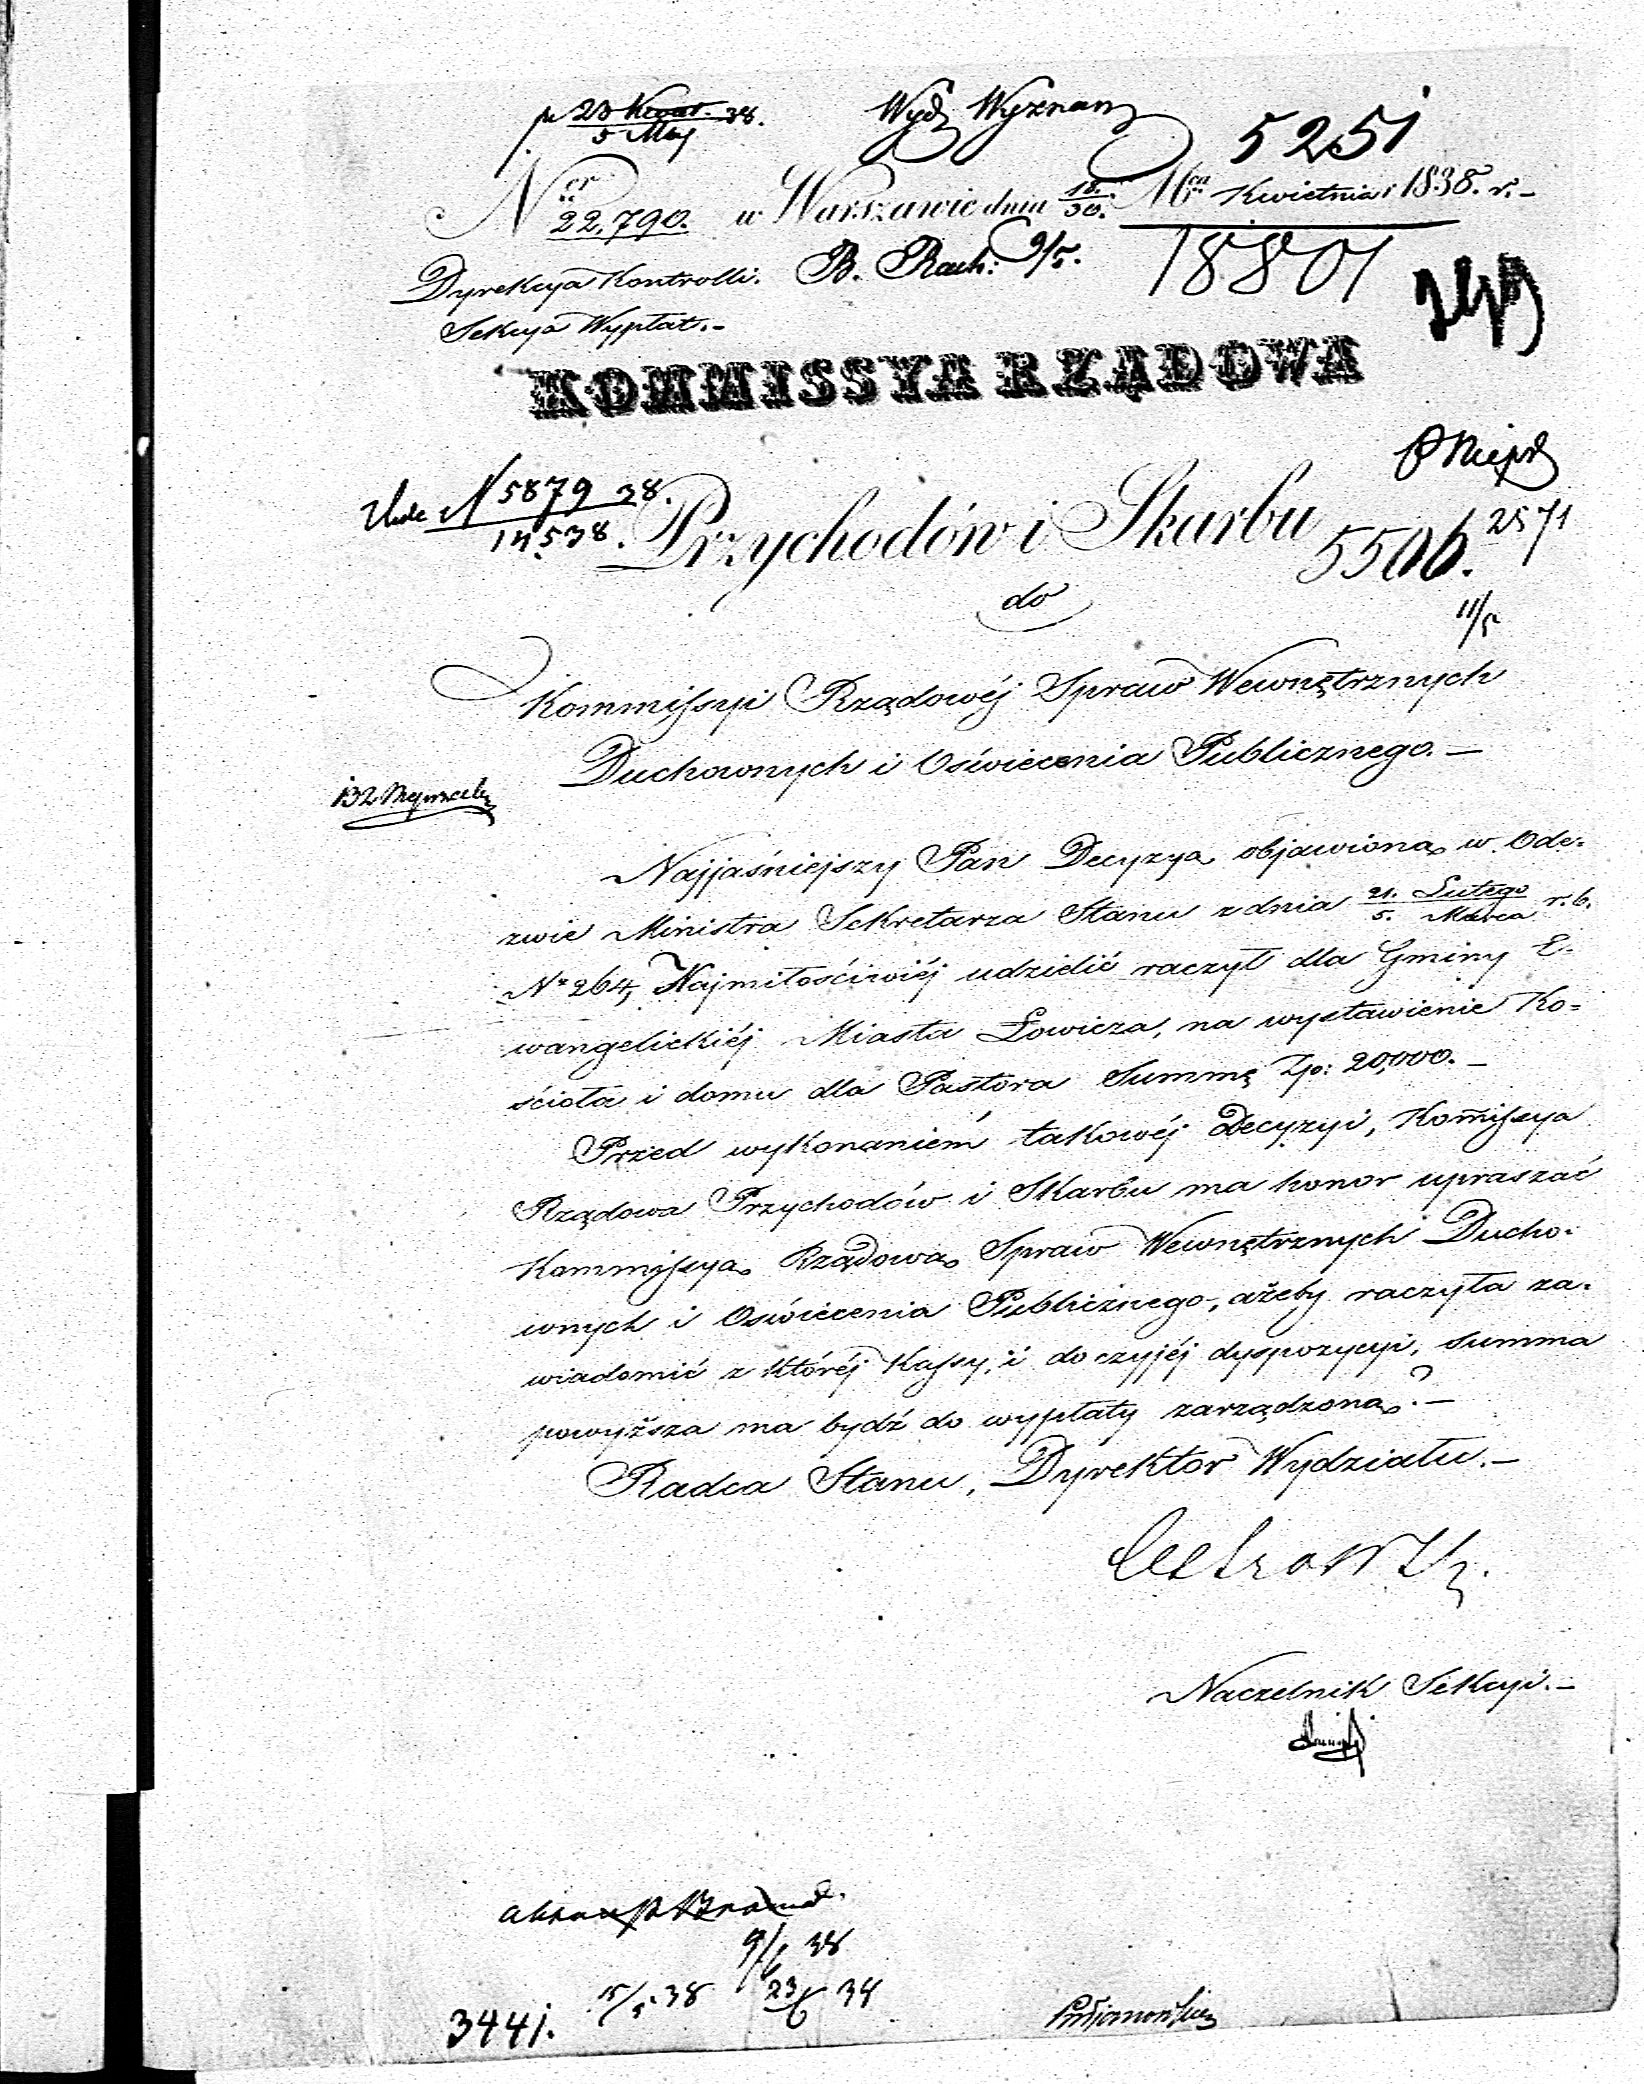 23 Kwiet. 38.
5 Maj
Wydz Wyznań
5251
Ner 22,790. w Warszawie dnia 18./30. Mca Kwietnia 1838. r.-
Dyrekcya Kontrolli. B. Rach: 9/5. 18801
Sekcya Wypłat.-
KOMMISSYA RZĄDOWA
N 5879 38.
14538.
Przychodów i Skarbu
5506. 2571
11/5
do
Kommissyi Rządowéj Spraw Wewnętrznych
Duchownych i Oświecenia Publicznego.-
Najjaśniejszy Pan Decyzyą objawioną w Ode=
zwie Ministra Sekretarza Stanu z dnia 21. Lutego/5. Marca r. b.
No 264, Najmiłościwiéj udzielić raczył dla Gminy E-
wangelickiéj Miasta Łowicza, na wystawienie Ko=
ścioła i domu dla Pastora Summę Złp: 20,000.-
Przed wykonaniem takowéj Decyzyi, Kom̃issya
Rządowa Przychodów i Skarbu ma honor upraszać
Kommissyą Rządową Spraw Wewnętrznych Ducho-
wnych i Oświecenia Publicznego, ażeby raczyła za-
wiadomić z któréj Kassy, i do czyjéj dyspozycyi, summa
powyższa ma bydź do wypłaty zarządzoną?-
Radca Stanu, Dyrektor Wydziału.-
Naczelnik Sekcyi.-
9/6 38
15/5 38 23/6 38
3441.